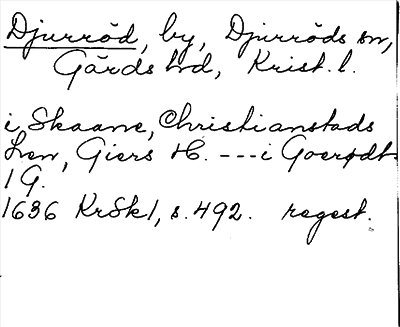 Djurröd, by, Djurröds sn,
Gärds hd, Krist. l.
i Skaane, Christianstads
Len, Giers H. --- i Goerødt
1 G.
1636 KrSk1, s. 492. regest.